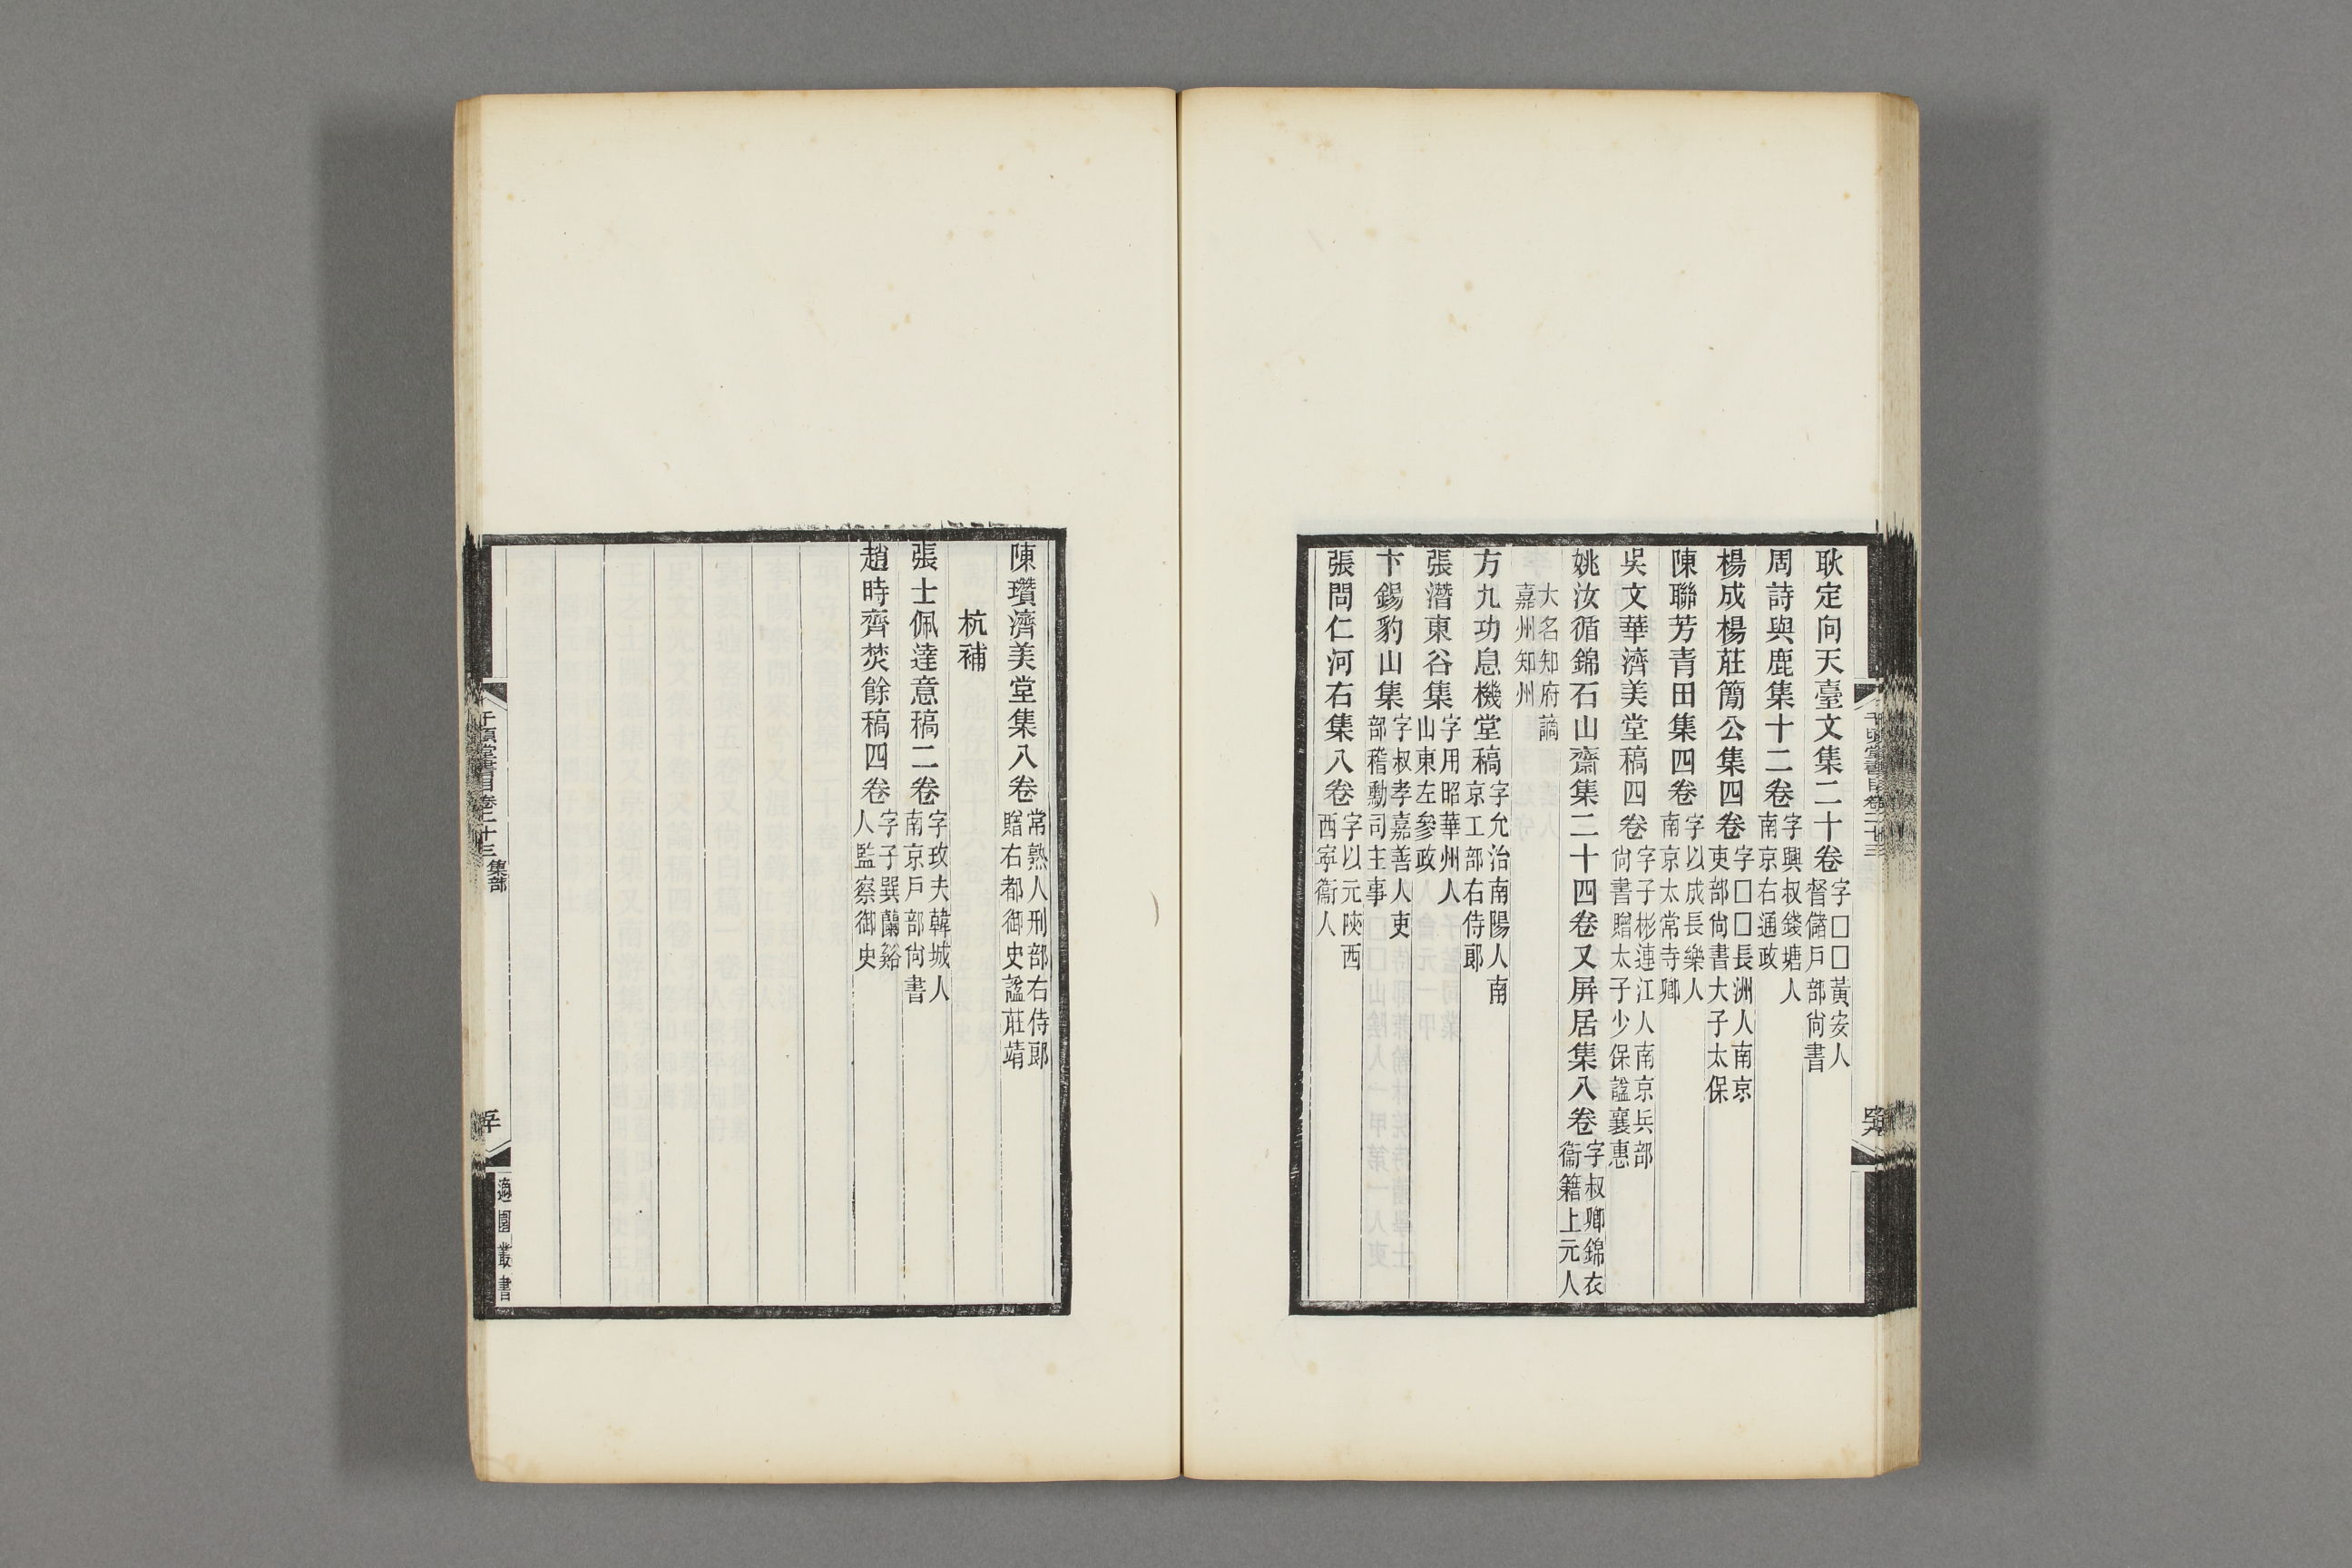 耿定向天臺文集二十卷字□□黃安人督儲戶部尙書
周詩與鹿集十二卷字興叔錢塘人南京右通政
楊成楊莊簡公集四卷字□□長洲人南京吏部尙書大子太保
陳聯芳青田集四卷字以成長樂人南京太常寺卿
吳文華濟美堂稿四卷字子彬連江人南京兵部尙書贈太子少保諡襄惠
姚汝循錦石山齋集二十四卷又屏居集八卷字叔卿錦衣衞籍上元人
大名知府謫嘉州知州
方九功息機堂稿字允治南陽人南京工部右侍郞
張潛東谷集字用昭華州人山東左參政
卞錫豹山集字叔孝嘉善人吏部稽勳司主事
張問仁河右集八卷字以元陝西西寧衞人
陳瓚濟美堂集八卷常熟人刑部右侍郞贈右都御史諡莊靖
杭補
張士佩達意稿二卷字玫夫韓城人南京戶部尙書
趙時齊焚餘稿四卷字子巽蘭谿人監察御史
千頃堂書目卷二十三 集部
適園叢書